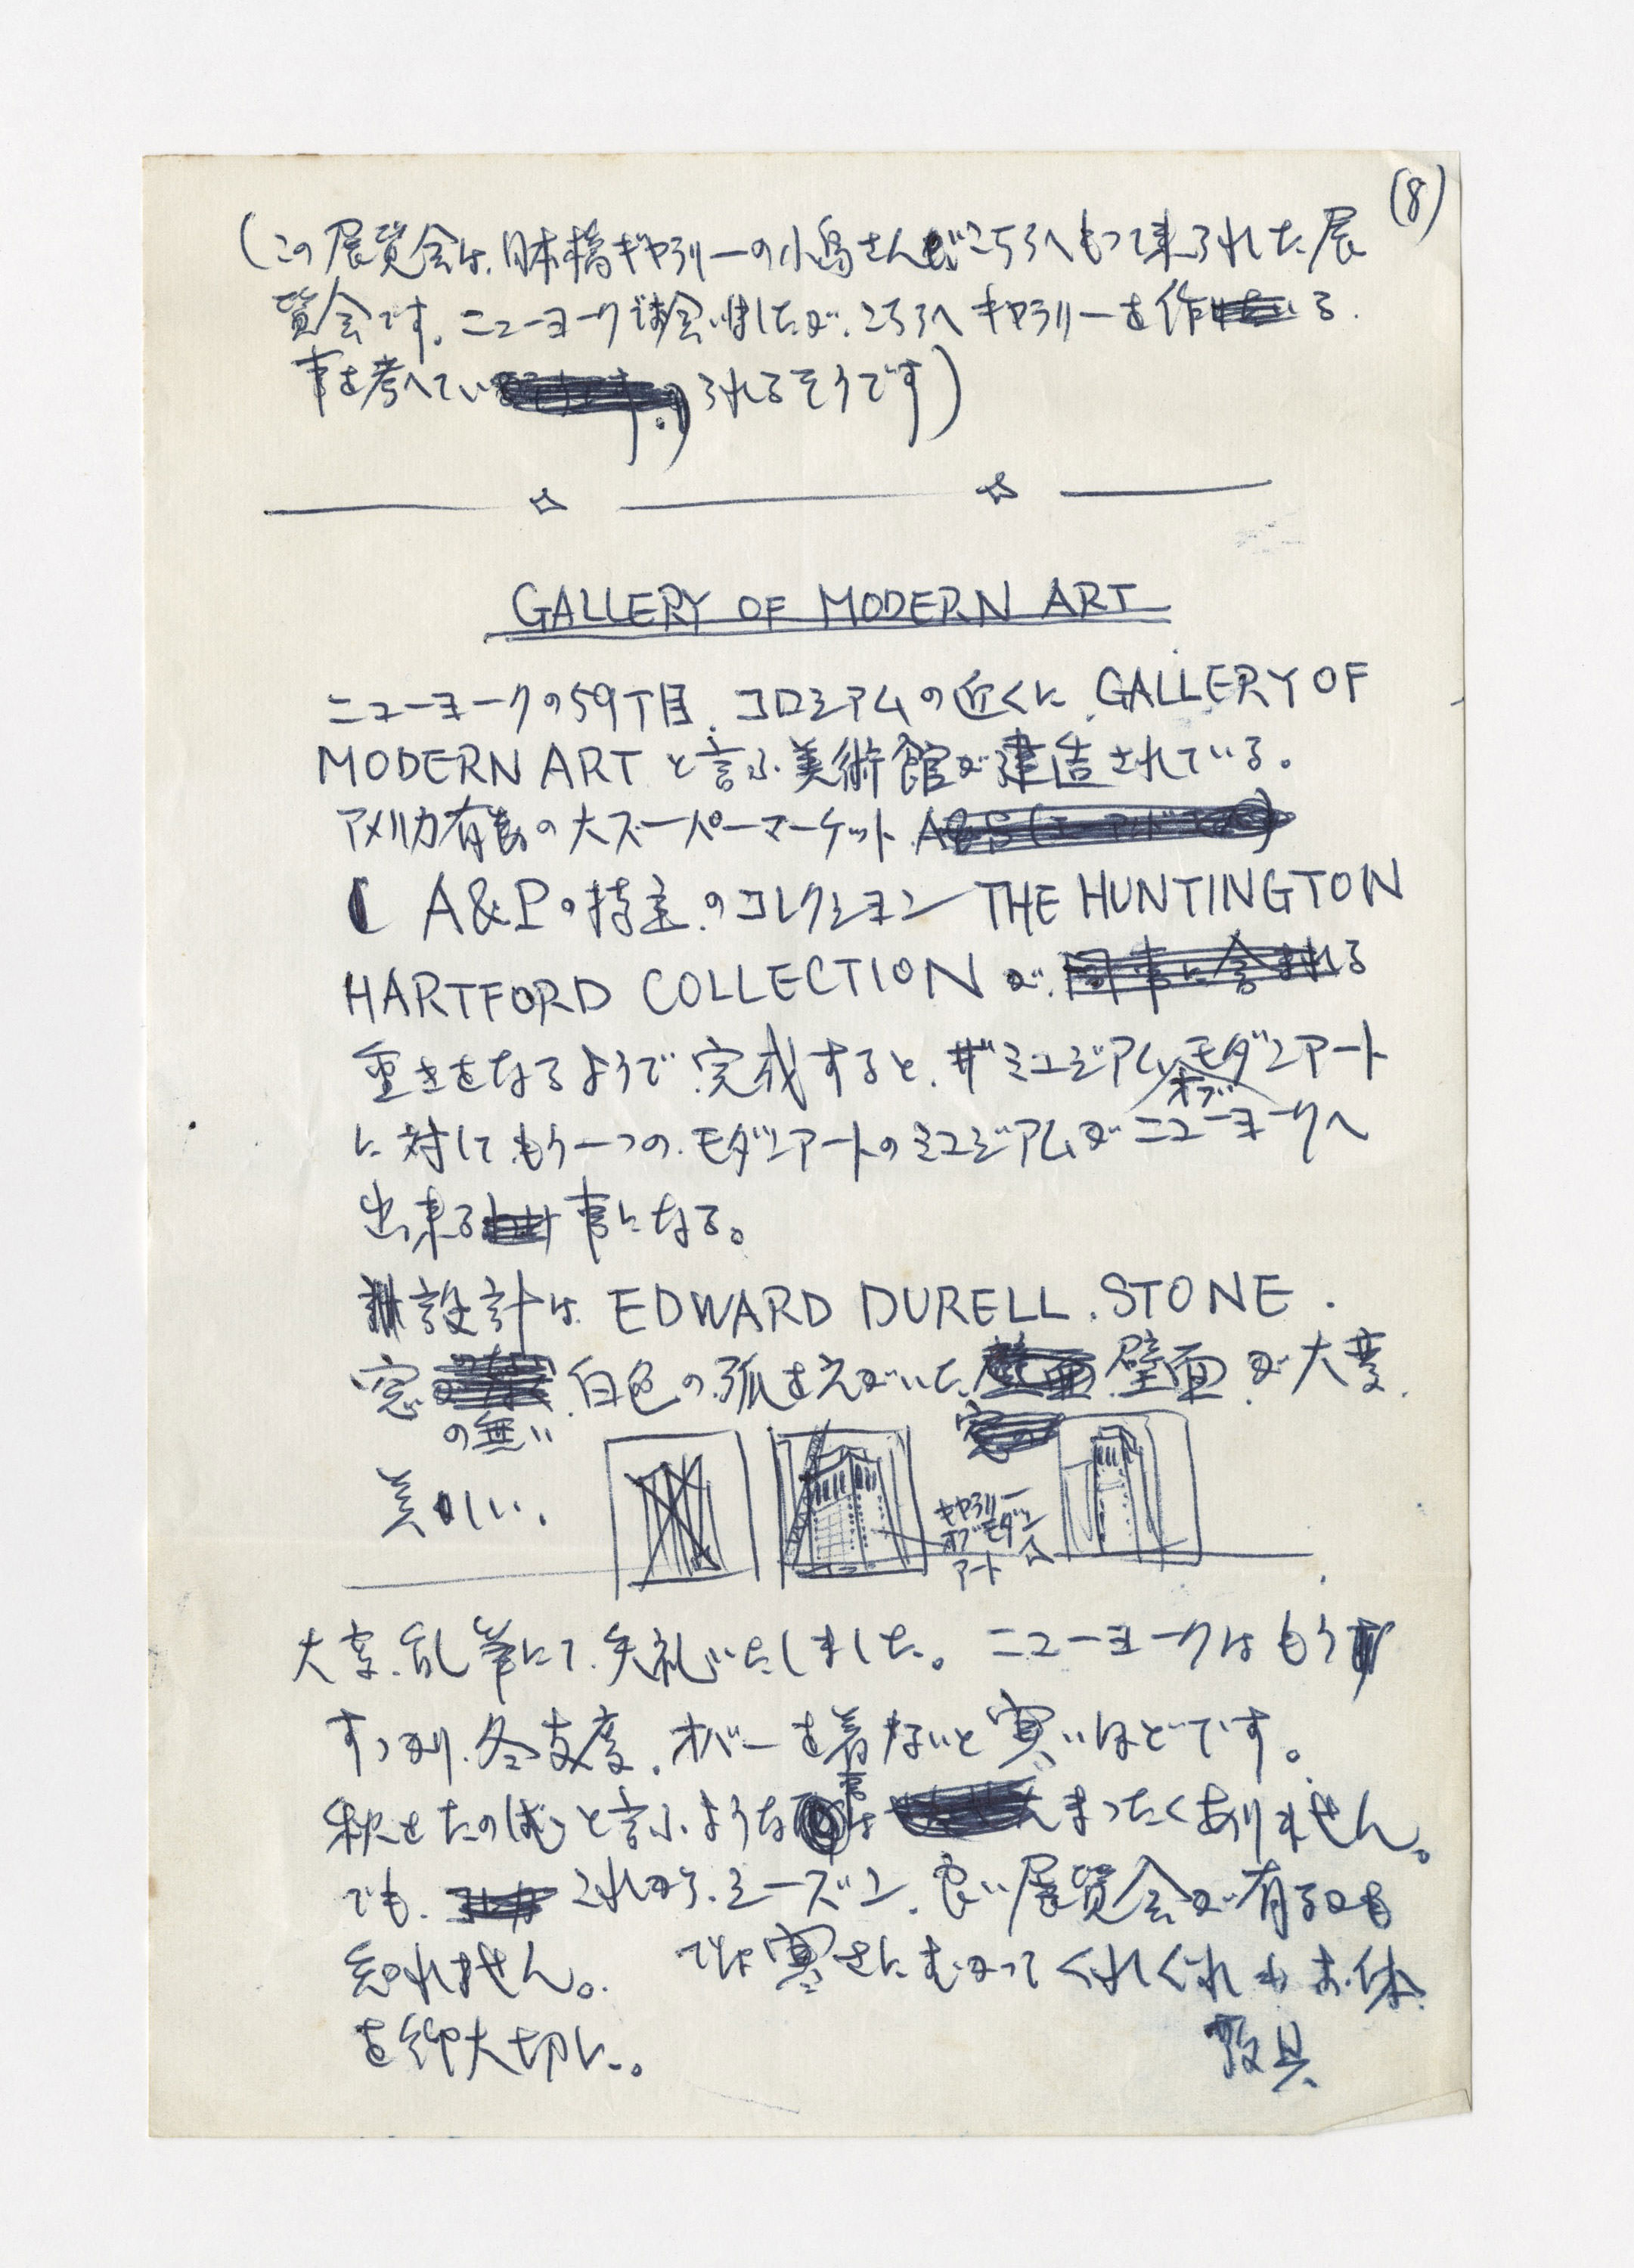 (8)
(この展覧会は、日本橋ギャラリーの小島さんがこちらへもって来られた展
覧会です。ニューヨークでお会いしましたが、こちらへギャラリーを作る
事を考へていられるそうです)
GALLERY OF MODERN ART
ニューヨークの59丁目、コロシアムの近くに、GALLERY OF
MODERN ART と言ふ美術館が建造されている。
アメリカ有数の大スーパーマーケット
A&Pの持主のコレクション THE HUNTINGTON
HARTFORD COLLECTION が
重きをなるようで完成すると、ミュジアムオブモダンアート
に対してもう一つのモダンアートのミュジアムがニューヨークへ
出来る事になる。
設計は EDWARD DURELL STONE.
窓の無い白色の弧をえがいた壁面が大変
美しい、
ギャラリー
オブモダン
アート
大変乱筆にて失礼いたしました。ニューヨークはもう
すっかり冬支度、オバーを着ないと寒いほどです。
秋をたのしむと言ふような事はまったくありません。
でも、これからシーズン、良い展覧会が有るかも
知れません。では寒さにむかってくれぐれもお体
を御大切に。
敬具